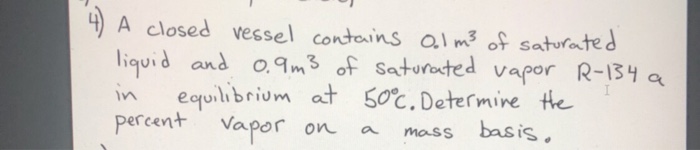 4) A closed vessel contains 0.1 m³ of saturated
liquid and 0.9m³ of saturated vapor R-134 a
in equilibrium at 50°C. Determine the
percent vapor on a mass basis.